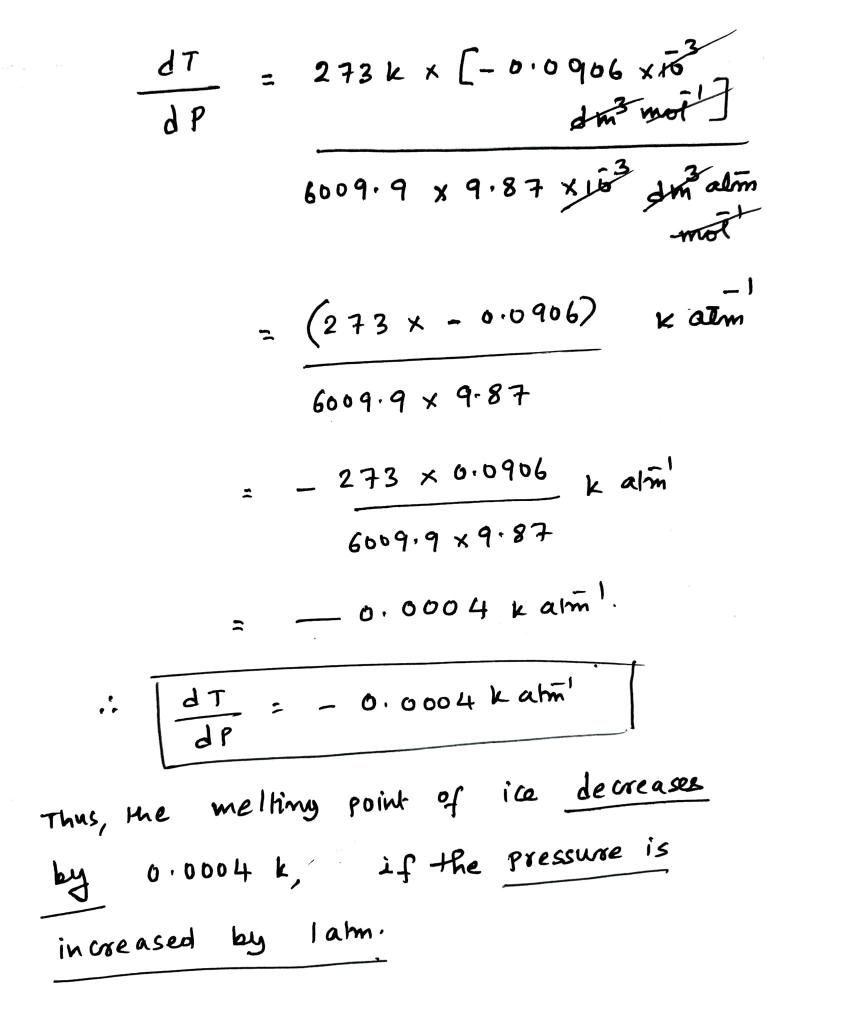 dT = 273 k × [- 0.0906 × 10⁻³
dP dm³ mol⁻¹]
6009.9 × 9.87 × 10⁻³ dm³ atm
mol⁻¹
= (273 × - 0.0906) k atm⁻¹
6009.9 × 9.87
= - 273 × 0.0906 k atm⁻¹
6009.9 × 9.87
= - 0.0004 k atm⁻¹.
∴ dT = - 0.0004 k atm⁻¹
dP
Thus, the melting point of ice decreases
by 0.0004 k, if the pressure is
increased by 1 atm.